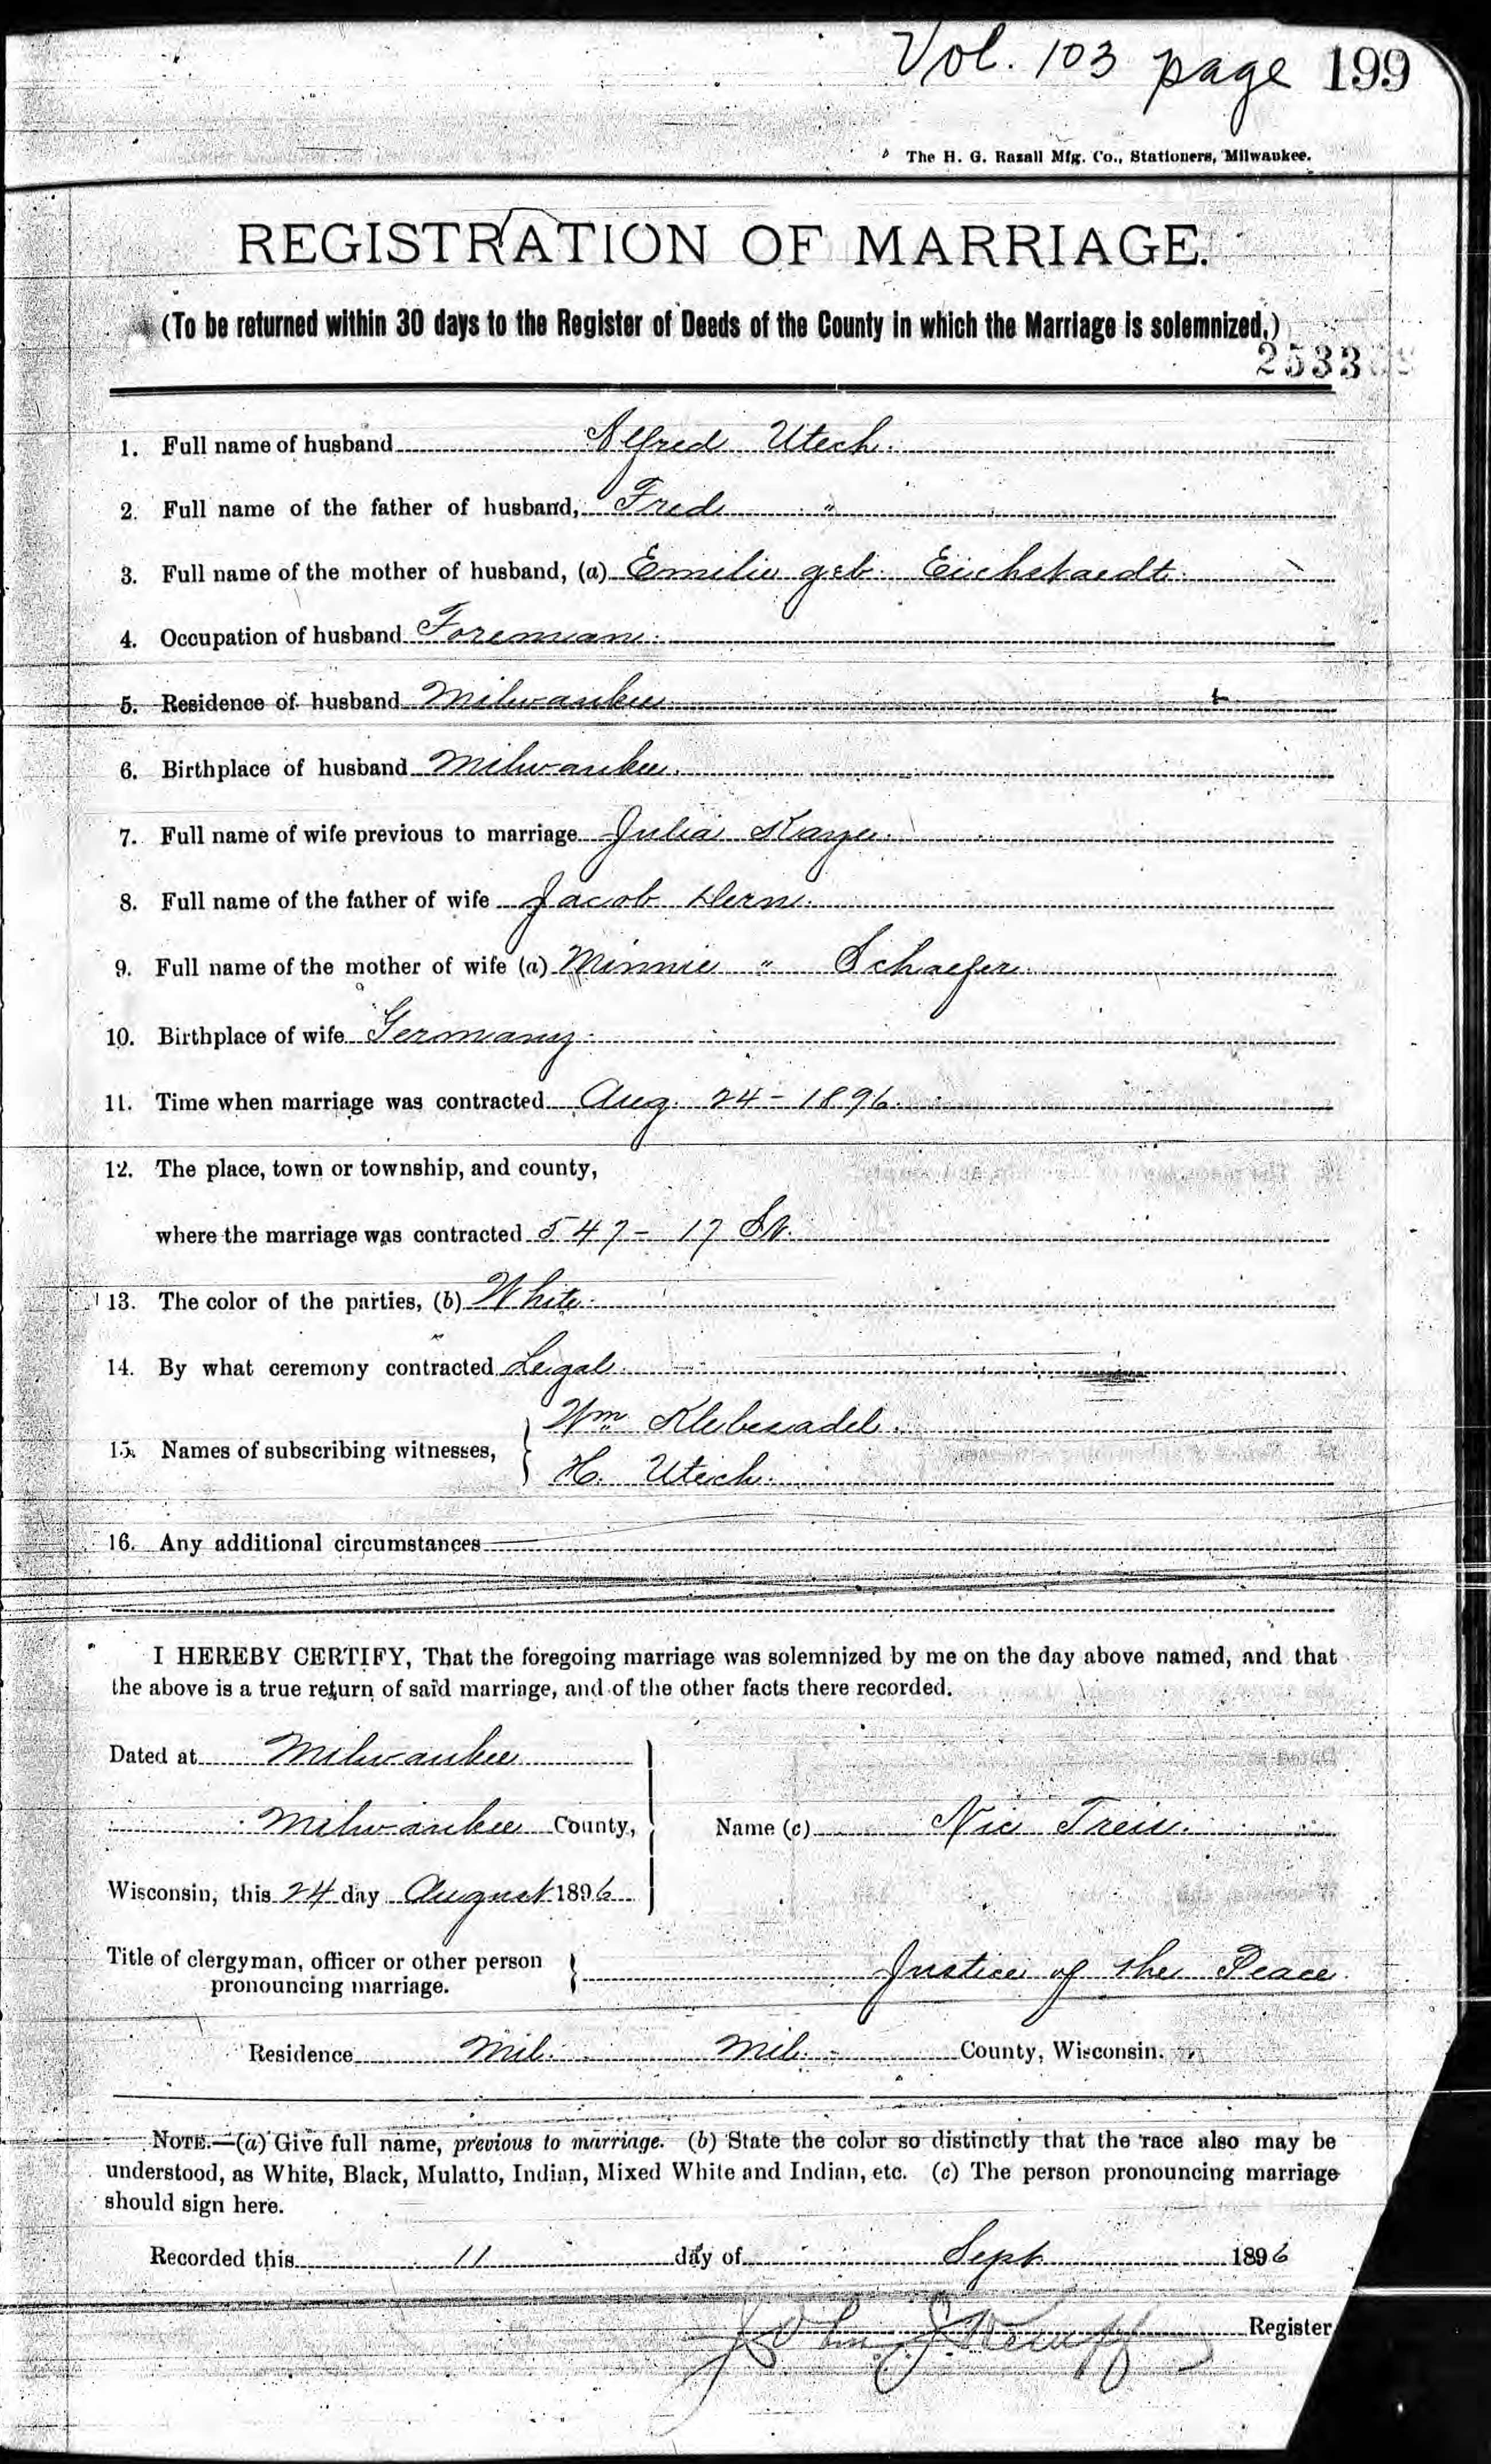 Vol. 103 page 199
The H. G. Razall Mfg. Co., Stationers, Milwaukee.
REGISTRATION OF MARRIAGE.
(To be returned within 30 days to the Register of Deeds of the County in which the Marriage is solemnized.)
2533
1. Full name of husband Alfred Utech.
2. Full name of the father of husband, Fred "
3. Full name of the mother of husband, (a) Emilie geb. Eichstaedt.
4. Occupation of husband Foreman.
5. Residence of husband Milwaukee
6. Birthplace of husband Milwaukee.
7. Full name of wife previous to marriage Julia
8. Full name of the father of wife Jacob
9. Full name of the mother of wife (a) Minnie " Schaefer.
10. Birthplace of wife Germany.
11. Time when marriage was contracted Aug. 24 - 1896.
12. The place, town or township, and county,
where the marriage was contracted 547 - 17 St.
13. The color of the parties, (b) White.
14. By what ceremony contracted Legal.
Wm Klebesadel.
15. Names of subscribing witnesses,
H. Utech.
16. Any additional circumstances
I HEREBY CERTIFY, That the foregoing marriage was solemnized by me on the day above named, and that
the above is a true return of said marriage, and of the other facts there recorded.
Dated at Milwaukee
Milwaukee County, Name (c) Nic Treis.
Wisconsin, this 24 day August 1896
Title of clergyman, officer or other person
pronouncing marriage. Justice of the Peace.
Residence Mil. Mil. County, Wisconsin.
NOTE.—(a) Give full name, previous to marriage. (b) State the color so distinctly that the race also may be
understood, as White, Black, Mulatto, Indian, Mixed White and Indian, etc. (c) The person pronouncing marriage
should sign here.
Recorded this 11 day of Sept 1896
John Register